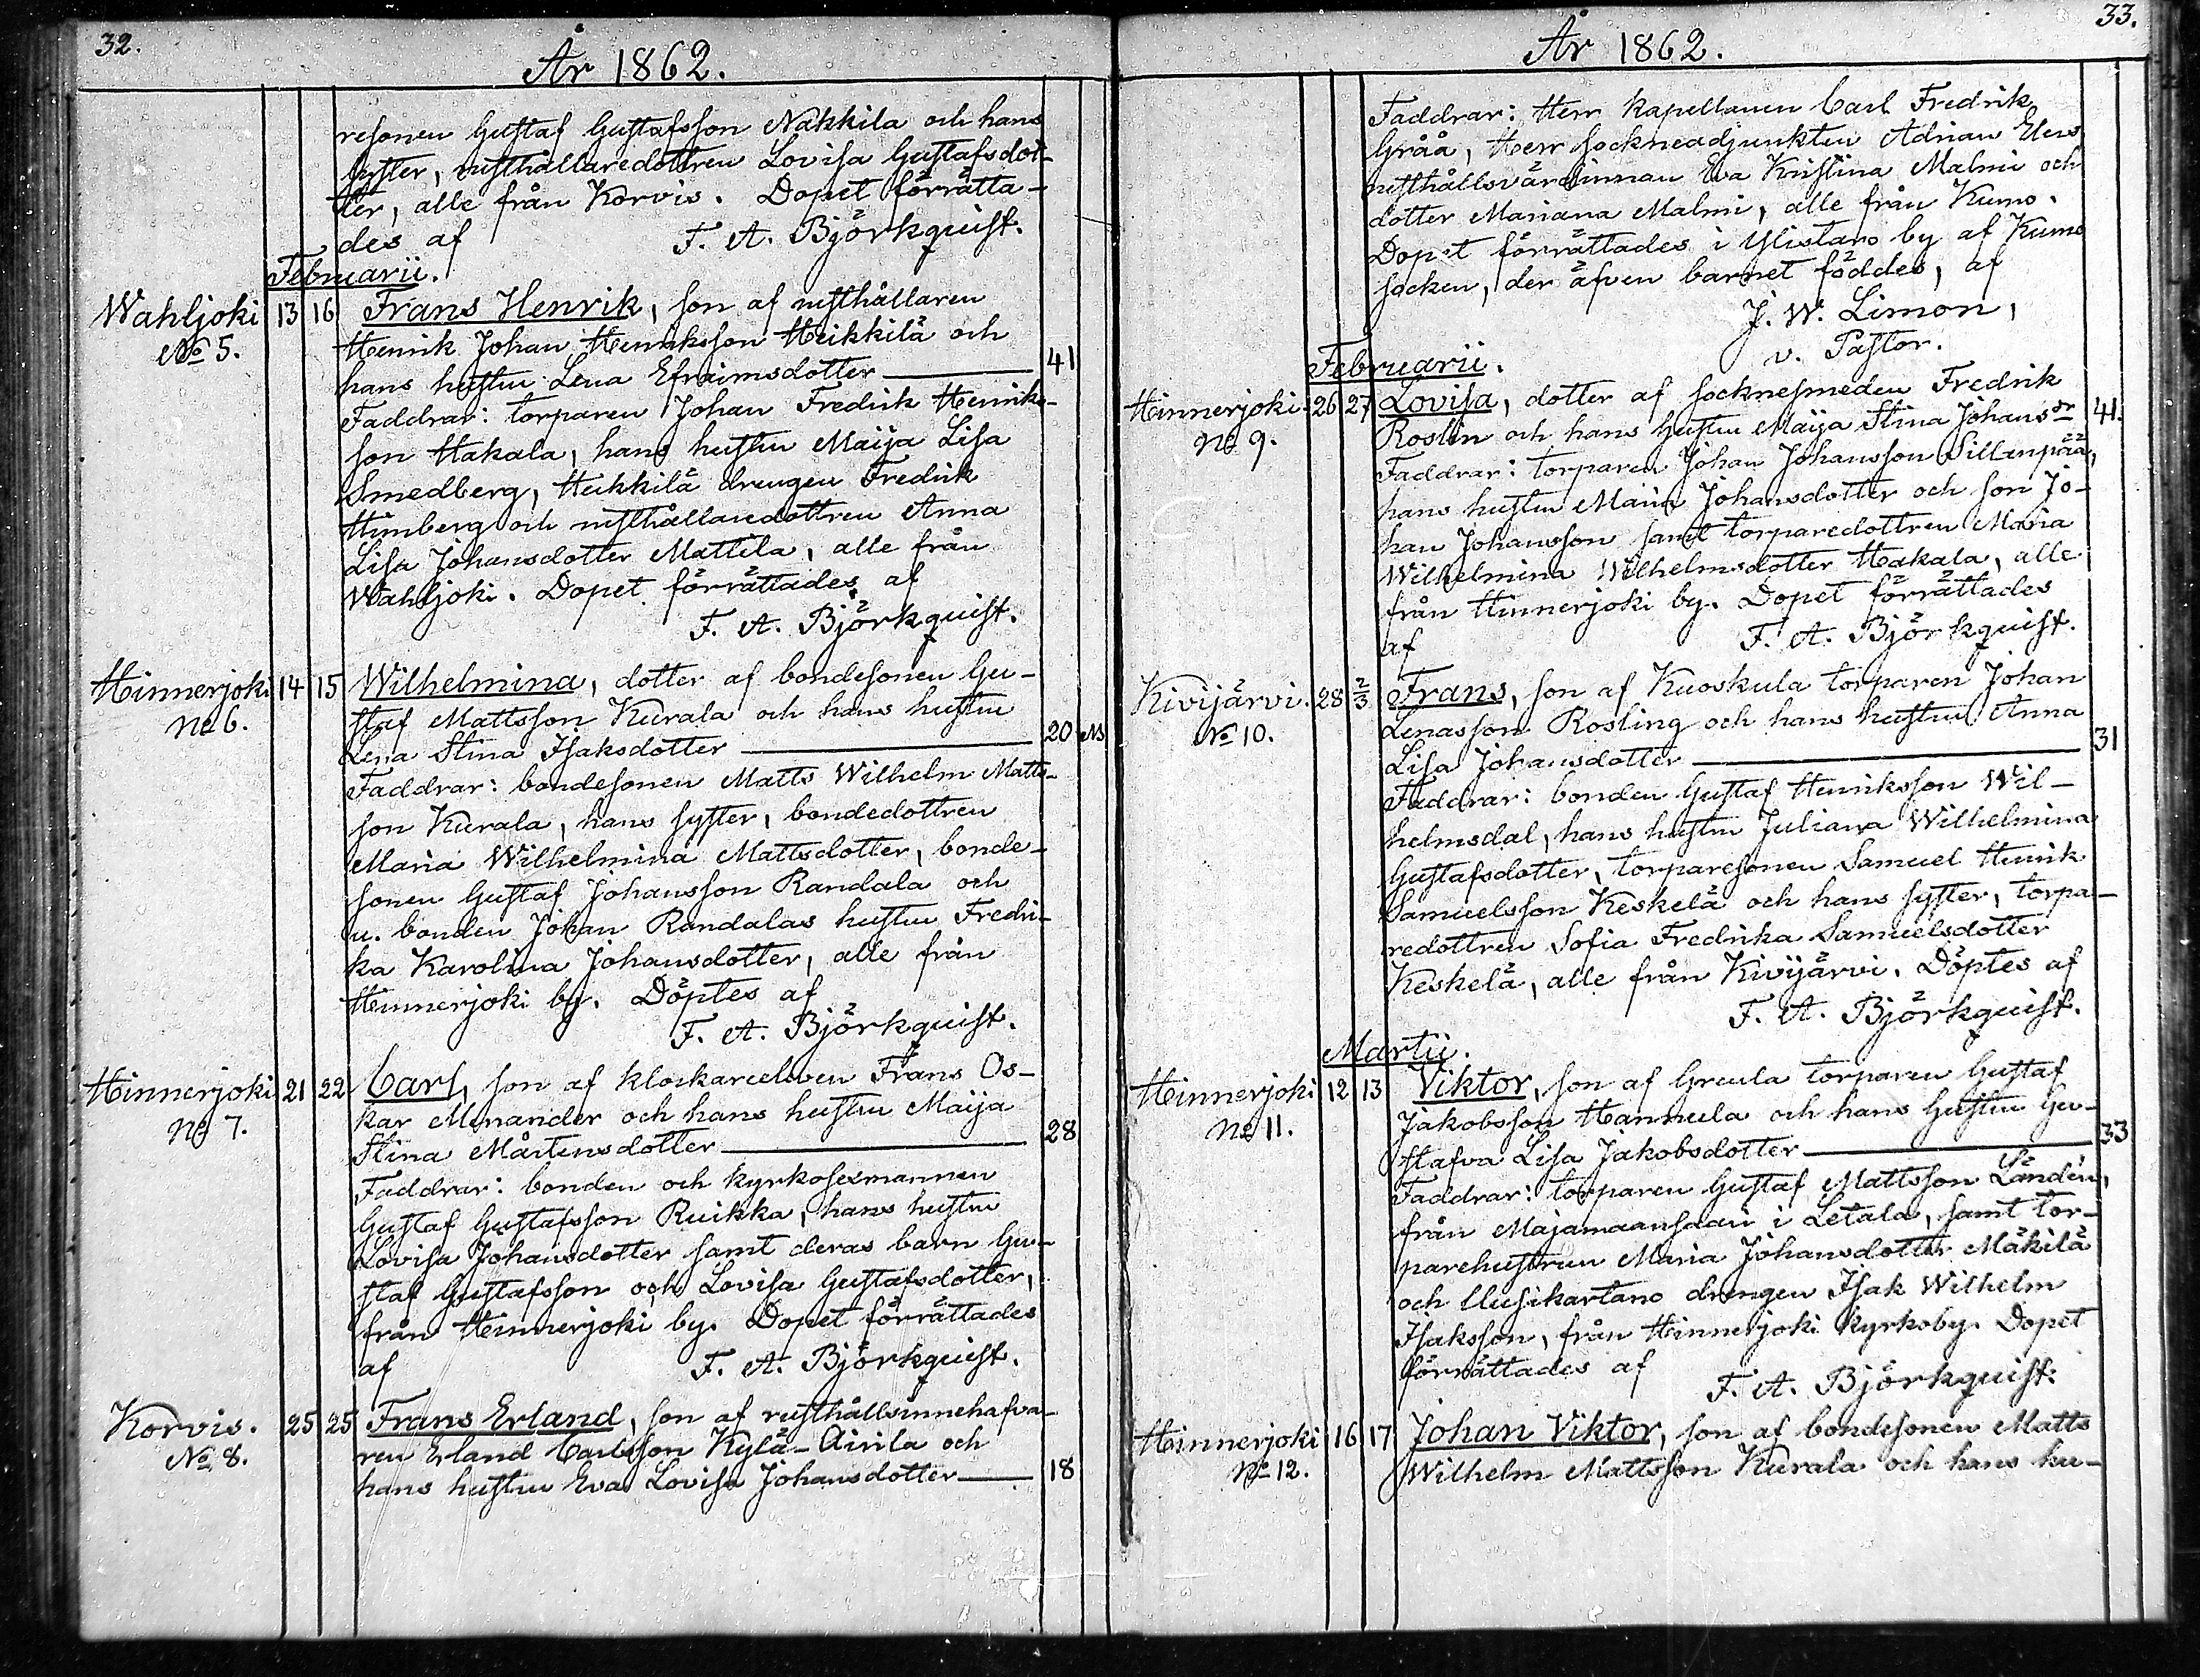 32.
År 1862.
resonen Gustaf Gustafsson Nakkila och hans
syster, rusthållaredottren Lovisa Gustafsdot-
ter, alle från Korvis. Dopet förrätta-
des af F. A. Björkquist.
Februarii.
Wahljoki 13 16 Frans Henrik, son af rusthållaren
No 5. Henrik Johan Henriksson Heikkilä och
hans hustru Lena Efraimsdotter — 41
Faddrar: torparen Johan Fredrik Henriks-
son Hakala, hans hustru Maija Lisa
Smedberg, Heikkilä drengen Fredrik
Himberg och rusthållaredottren Anna
Lisa Johansdotter Mattila, alle från
Wahljoki. Dopet förrättades af
F. A. Björkquist.
Hinnerjoki 14 15 Wilhelmina, dotter af bondesonen Gu-
No 6. staf Mattsson Kurala och hans hustru
Lena Stina Isaksdotter — 20 Ns
Faddrar: bondesonen Matts Wilhelm Matts-
son Kurala, hans syster, bondedottren
Maria Wilhelmina Mattsdotter, bonde-
sonen Gustaf Johansson Randala och
u. bonden Johan Randalas hustru Fredri-
ka Karolina Johansdotter, alle från
Hinnerjoki by. Döptes af
F. A. Björkquist.
Hinnerjoki 21 22 Carl, son af klockareeleven Frans Os-
No 7. kar Menander och hans hustru Maija
Stina Mårtensdotter — 28
Faddrar: bonden och kyrkosexmannen
Gustaf Gustafsson Ruikka, hans hustru
Lovisa Johansdotter samt deras barn Gu-
staf Gustafsson och Lovisa Gustafsdotter,
från Hinnerjoki by. Dopet förrättades
af F. A. Björkquist.
Korvis. 25 25 Frans Erland, son af rusthållsinnehafva-
No 8. ren Erland Carlsson Kylä-Airila och
hans hustru Eva Lovisa Johansdotter — 18
33.
År 1862.
Faddrar: Herr Kapellanen Carl Fredrik
Gråå, Herr sockneadjunkten Adrian
rusthållsvärdinnan Eva Kristina Malmi och
dotter Mariana Malmi, alle från Kumo.
Dopet förrättades i Ylistaro by af Kumo
socken, der äfven barnet föddes, af
J. W. Limon,
v. Pastor.
Februarii.
Hinnerjoki. 26 27 Lovisa, dotter af socknesmeden Fredrik
No 9. Roslin och hans hustru Maija Stina Johansdr 41.
Faddrar: torparen Johan Johansson Sillanpää,
hans hustru Maria Johansdotter och son Jo-
han Johansson samt torparedottren Maria
Wilhelmina Wilhelmsdotter Hakala, alle
från Hinnerjoki by. Dopet förrättades
af F. A. Björkquist.
Kivijärvi. 28 2/3 Frans, son af Kuoskula torparen Johan
No 10. Lenasson Rosling och hans hustru Anna
Lisa Johansdotter — 31
Faddrar: bonden Gustaf Henriksson Wil-
helmsdal, hans hustru Juliana Wilhelmina
Gustafsdotter, torparesonen Samuel Henrik
Samuelsson Keskelä och hans syster, torpa-
redottren Sofia Fredrika Samuelsdotter
Keskelä, alle från Kivijärvi. Döptes af
F. A. Björkquist.
Martii.
Hinnerjoki 12 13 Viktor, son af Greula torparen Gustaf
No 11. Jakobsson Hannula och hans hustru Gu-
stafva Lisa Jakobsdotter — 33
Faddrar: torparen Gustaf Mattsson Landén,
från Majamaansaari i Letala, samt tor-
parehustrun Maria Johansdotter Mäkilä
och Uusikartano drengen Isak Wilhelm
Isaksson, från Hinnerjoki kyrkoby. Dopet
förrättades af F. A. Björkquist.
Hinnerjoki 16 17 Johan Viktor, son af bondesonen Matts
No 12. Wilhelm Mattsson Kurala och hans hu-